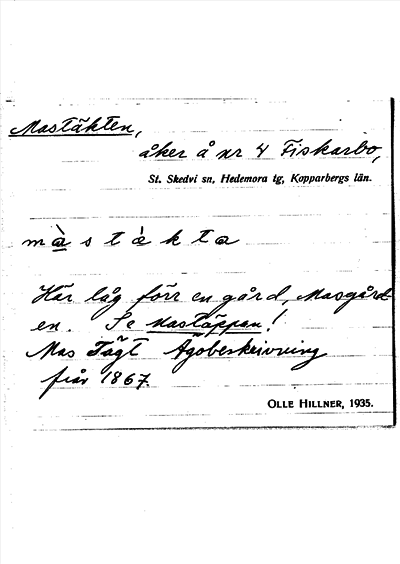 Mastäkten,
åker å nr 4 Fiskarbo,
St. Skedvi sn, Hedemora tg, Kopparbergs län.
mà̱stɛ̀kta
Här låg förr en gård, Masgård-
en. Se Mastäppan!
Mas Tägt Ägobeskrivning
från 1867.
OLLE HILLNER, 1935.